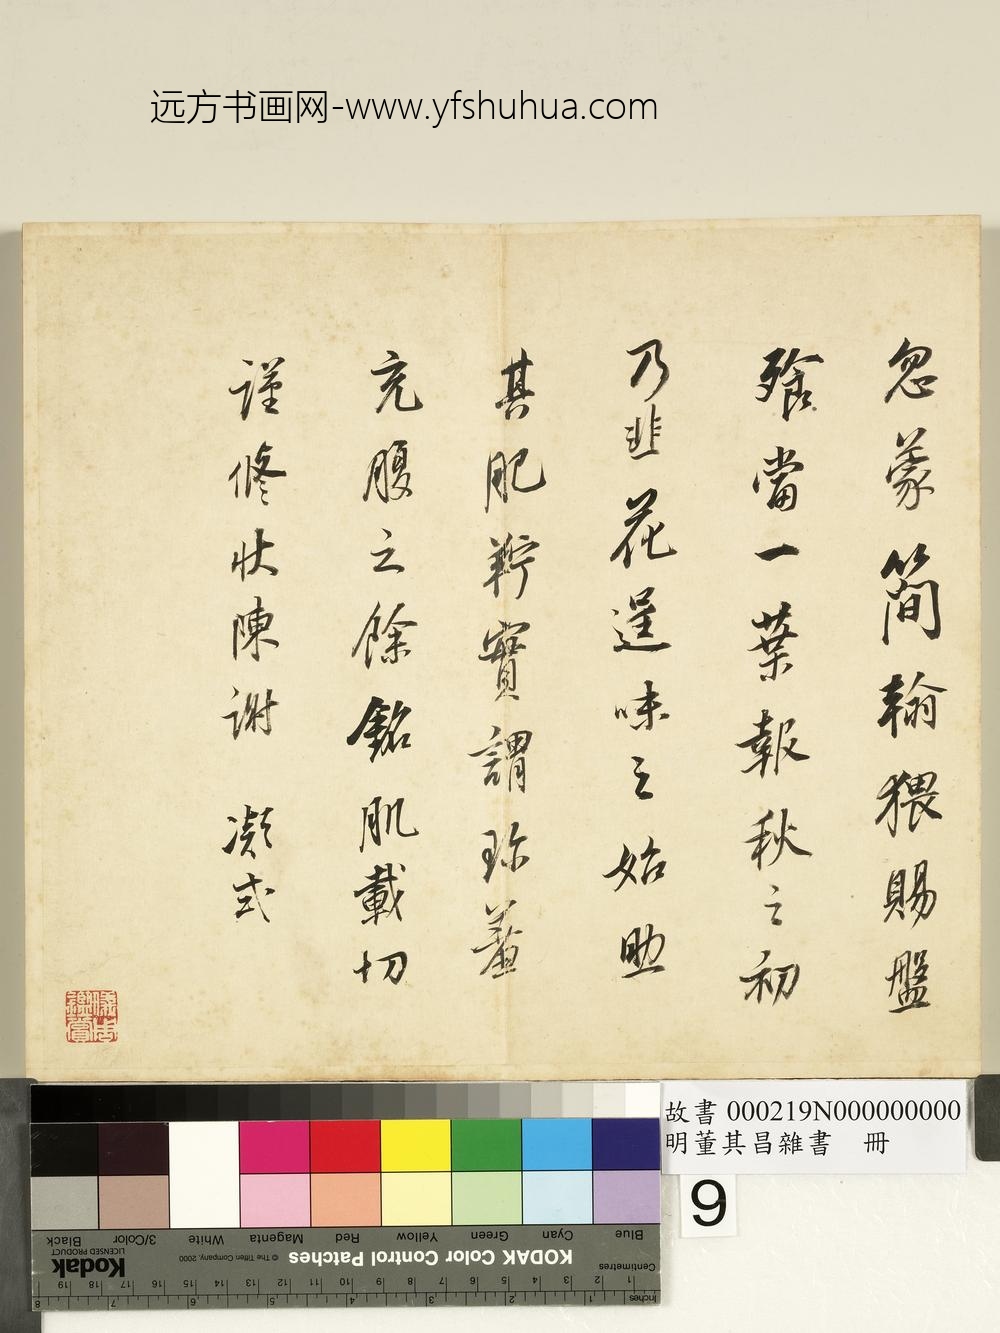 远方书画网-www.yfshuhua.com
忽蒙簡翰猥賜盤
飱當一葉報秋之初
乃韭花逞味之始助
其肥羜實謂珎羞
充腹之餘銘肌載切
謹修狀陳謝 凝式
故書 000219N000000000
明董其昌雜書 冊
9
Blue Cyan Green Yellow Red Magenta White 3/Color Black
KODAK Color Control Patches © The Tiffen Company, 2000 Kodak
LICENSED PRODUCT
Centimetres
1 2 3 4 5 6 7 8 9 10 11 12 13 14 15 16 17 18 19
Inches 1 2 3 4 5 6 7 8